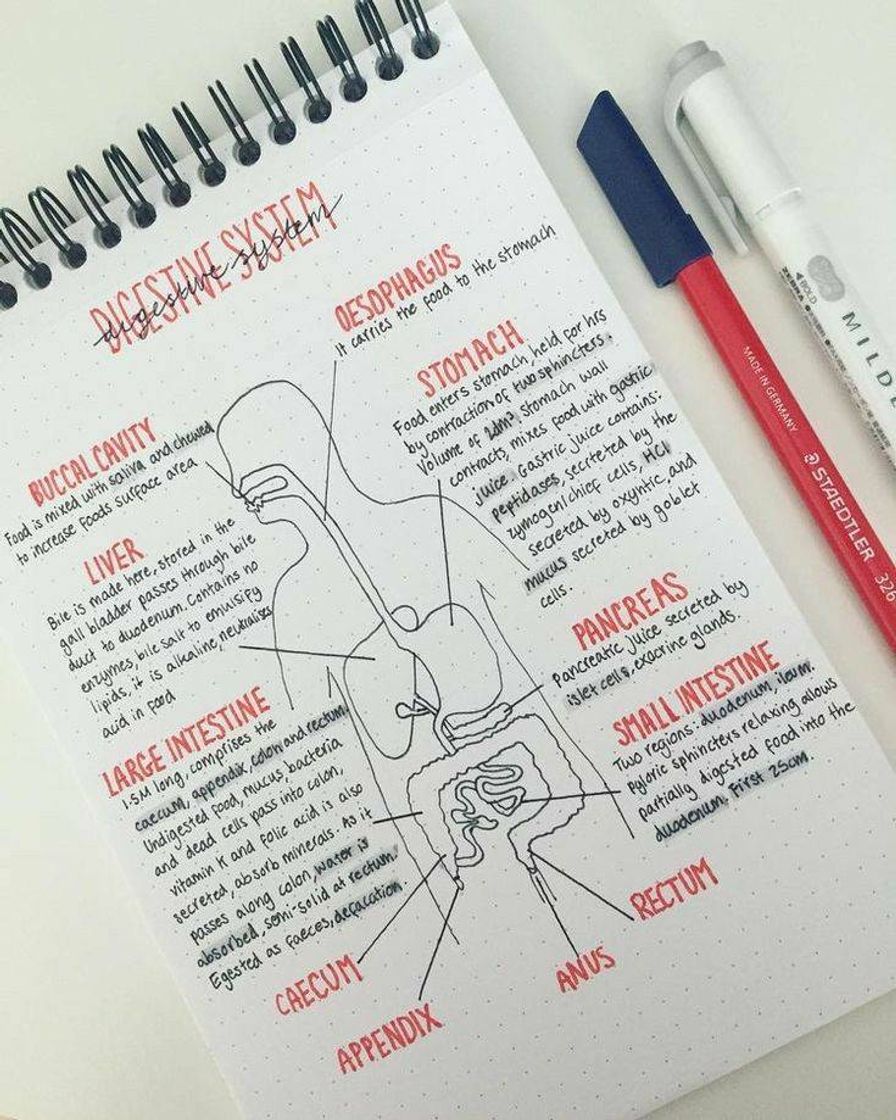 DIGESTIVE SYSTEM
digestive system
OESOPHAGUS
It carries the food to the stomach
STOMACH
Food enters stomach, held for hrs
by contraction of two sphincters.
Volume of 2dm³, stomach wall
contracts, mixes food with gastric
juice. Gastric juice contains:
peptidases, secreted by the
zymogen/chief cells, HCl
secreted by oxyntic, and
mucus secreted by goblet
cells.
BUCCAL CAVITY
Food is mixed with saliva and chewed
to increase foods surface area
LIVER
Bile is made here, stored in the
gall bladder passes through bile
duct to duodenum. Contains no
enzymes, bile salt to emulsify
lipids, it is alkaline, neutralises
acid in food
PANCREAS
Pancreatic juice secreted by
islet cells, exocrine glands.
SMALL INTESTINE
Two regions: duodenum, ileum.
Pyloric sphincters relaxing allows
partially digested food into the
duodenum. First 25cm.
LARGE INTESTINE
1.5M long, comprises the
caecum, appendix, colon and rectum.
Undigested food, mucus, bacteria
and dead cells pass into colon,
vitamin K and folic acid is also
secreted, absorb minerals. As it
passes along colon, water is
absorbed, semi-solid at rectum.
Egested as faeces, defacation.
CAECUM
APPENDIX
ANUS
RECTUM
MADE IN GERMANY
STAEDTLER 326
BOLD
ZEBRA
MILDL